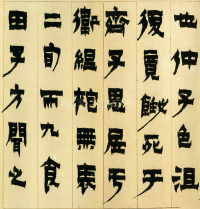 也仲子色沮
復死于
齊子思居于
衛縕袍無表
二旬而九食
田子方聞之